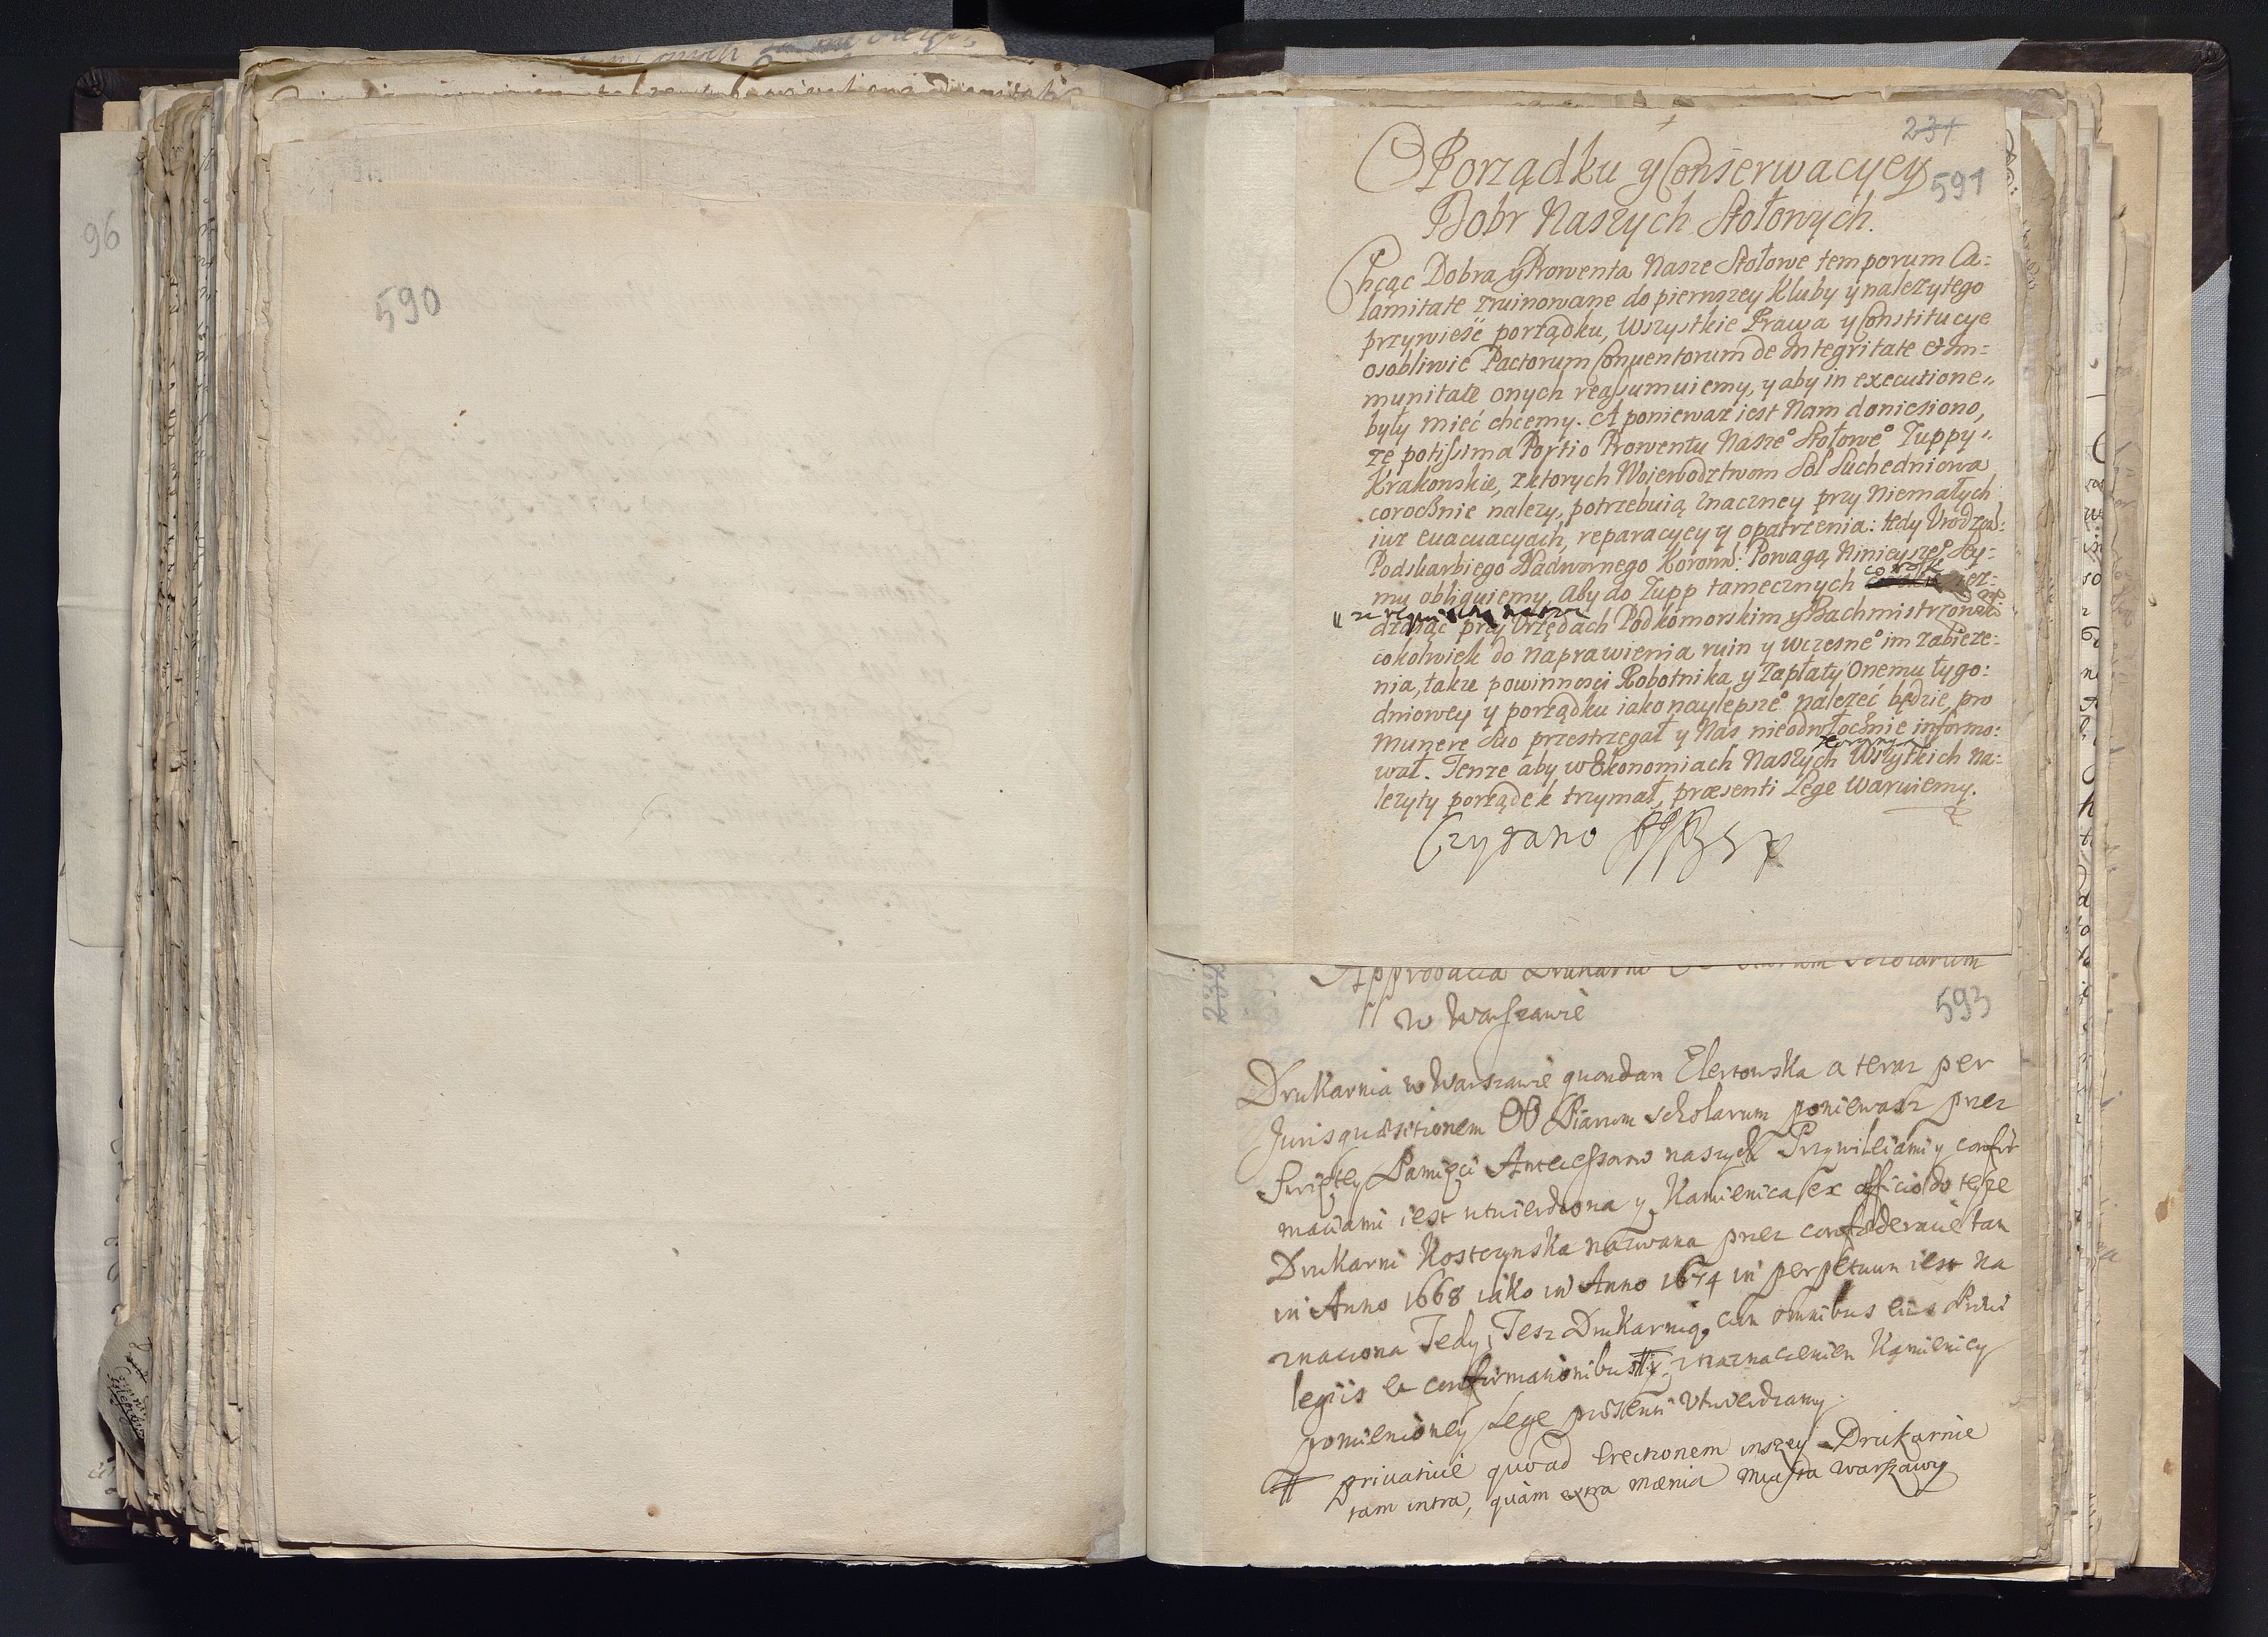 96
590
231
O Porządku y Conserwacyey
591
Dobr Naszych Stołowych.
Chcąc Dobra y Prowenta Nasze Stołowe temporum Ca=
lamitate zruinowane do pierwszey kluby y nalezytego
przywieść porządku, Wszystkie Prawa y Constitucye
osobliwie Pactorum Conuentorum de Integritate et Im=
munitate onych reassumuiemy, y aby in executione
były mieć chcemy. A ponieważ iest Nam doniesiono,
ze potissima Portio Prowentu Nasze° Stołowe° Zuppy
Krakowskie, z ktorych Woiewodztwom Sol Suchedniowa
corocznie nalezy, potrzebuią znaczney przy niemałych
iuz euacuacyach, reparacyey y opatrzenia: tedy Urodzo:
Podskarbiego Nadwornego Koronn: Powagą Ninieysze° Sey=
mu obliguiemy, aby do Zupp tamecznych
przy Urzędach Podkomorskim y Bachmistrzowski
cokolwiek do naprawienia ruin y wczesne° im zabieze=
nia, takze powinnosci Robotnika y Zapłaty Onemu tygo:
dniowey y porządku iako naylepsze° nalezeć będzie, pro
munere Suo przestrzegał y Nas nieodwłocznie informo:
wał. Tenze aby w Ekonomiach Naszych Wszytkich na=
lezyty porządek trzymał, præsenti Lege Waruiemy.
Czytano
232
Approbacia Drukarni Scholarum
w Warszawie
593
Drukarnia w Warszawie quondam Elertowska a teraz per
Juris quæsitionem OO Piarum Scholarum poniewasz przez
Swiętey Pamięci Antecessorow naszych Przywileiami y confir
maciami iest utwierdzona y Kamienica ex officio do teyze
Drukarni Kostczynska nazwana przez confæderacie tak
in Anno 1668 iako in Anno 1674 in perpetuum iest na
znaczona Tedy Tesz Drukarnią cum omnibus eius Priui
legiis et confirmationibus # z naznaczeniem Kamienicy
pomienioney Lege præsenti Utwierdzamy.
# priuatiuè quoad Erectionem inszey Drukarnie
tam intra, quàm extra mænia Miasta Warszawy